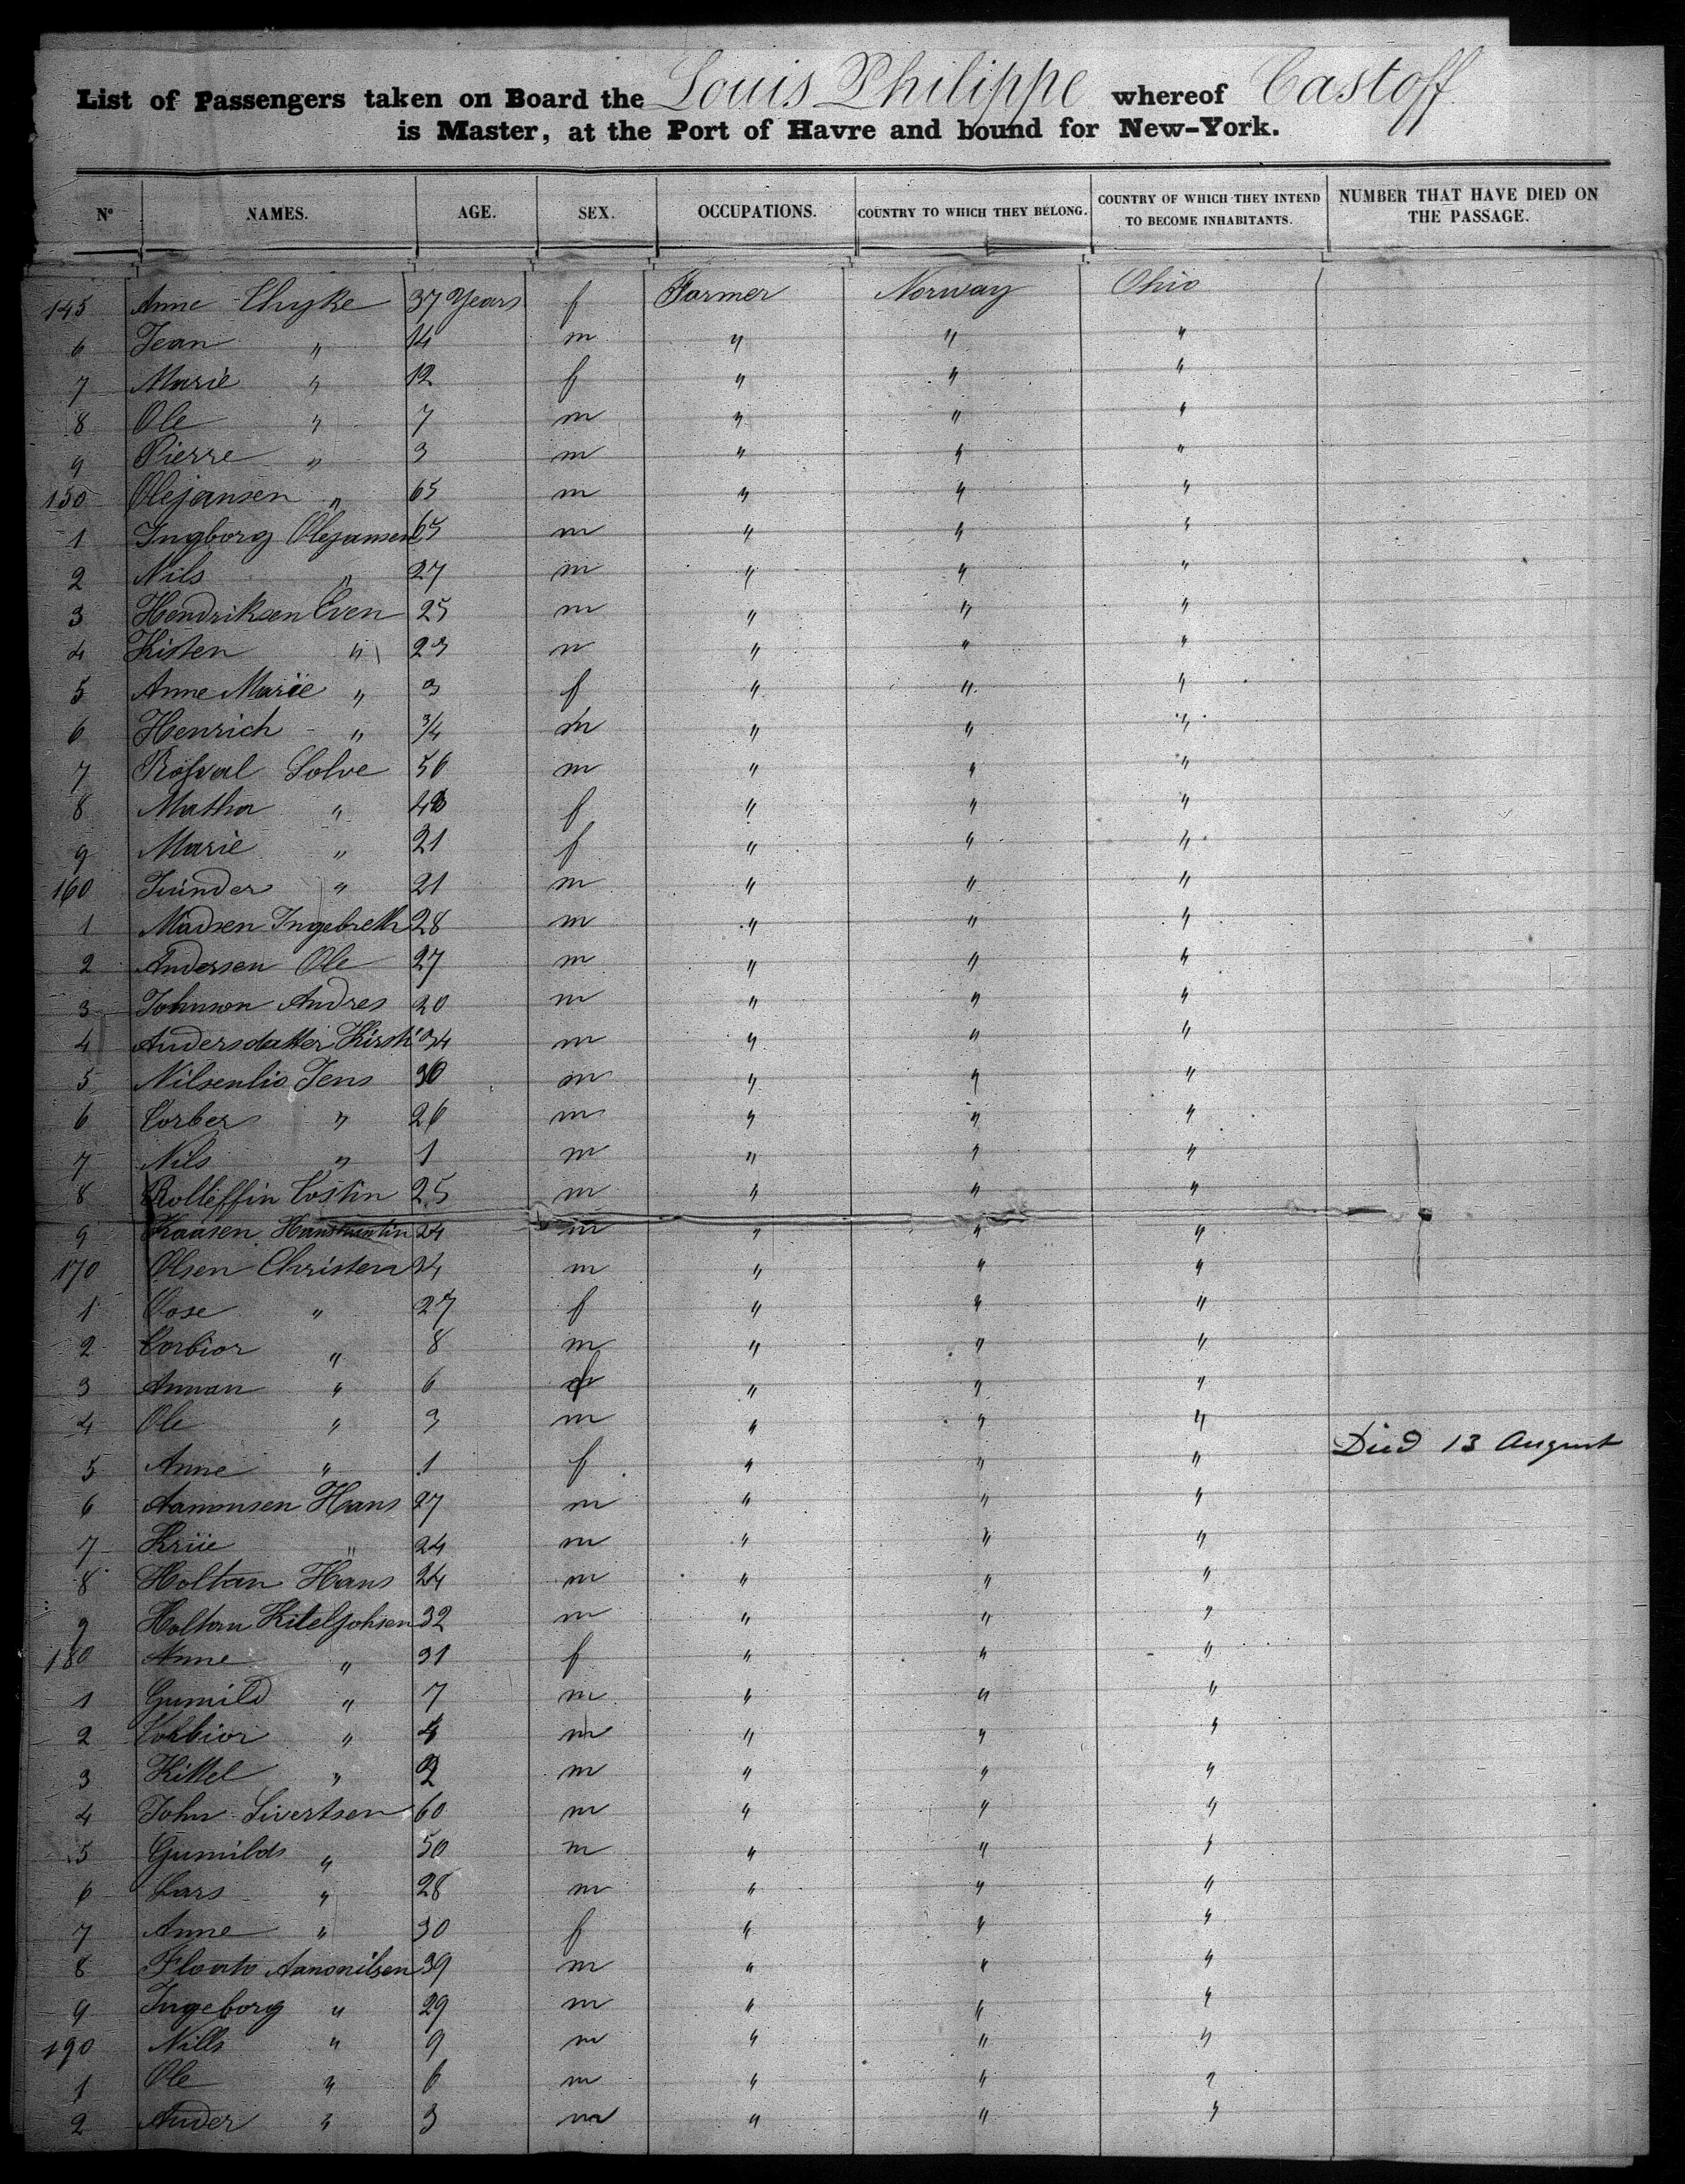 List of Passengers taken on Board the Louis Philippe whereof Castoff
is Master, at the Port of Havre and bound for New-York.
Nº NAMES. AGE. SEX. OCCUPATIONS. COUNTRY TO WHICH THEY BELONG. COUNTRY OF WHICH THEY INTEND TO BECOME INHABITANTS. NUMBER THAT HAVE DIED ON THE PASSAGE.
145 Anne 37 Years f Farmer Norway Ohio
6 Jean " 14 m " " "
7 Marie " 12 f " " "
8 Ole " 7 m " " "
9 Pierre " 3 m " " "
150 Olejansen " 65 m " " "
1 Ingborg Olejansen 65 m " " "
2 Nils " 27 m " " "
3 Hendriksen Even 25 m " " "
4 Kisten " 23 m " " "
5 Anne Marie " 3 f " " "
6 Henrich " 3/4 m " " "
7 Solve 56 m " " "
8 Matha " f " " "
9 Marie " 21 f " " "
160 " 21 m " " "
1 Madsen Ingebreth 28 m " " "
2 Andersen Ole 27 m " " "
3 Johnson Andres 20 m " " "
4 Andersdatter Kirsti 34 m " " "
5 Nilsenlio Jens 30 m " " "
6 Torber " 26 m " " "
7 Nils " 1 m " " "
8 Rolleffin Tostin 25 m " " "
9 Kaasen 24 m " " "
170 Olsen Christen 34 m " " "
1 " 27 f " " "
2 Torbior " 8 m " " "
3 Annan " 6 f " " "
4 Ole " 3 m " " "
5 Anne " 1 f " " " Died 13 August
6 Aamonsen Hans 27 m " " "
7 " 24 m " " "
8 Holtan Hans 24 m " " "
9 Holtan Kiteljohsen 32 m " " "
180 Anne " 31 f " " "
1 Gumild " 7 m " " "
2 Torbior " 4 m " " "
3 Kittel " 2 m " " "
4 John Sivertsen 60 m " " "
5 Gumilds " 50 m " " "
6 Lars " 28 m " " "
7 Anne " 30 f " " "
8 Aanonilsen 39 m " " "
9 Ingeborg " 29 m " " "
190 Nills " 9 m " " "
1 Ole " 6 m " " "
2 Ander " 3 m " " "